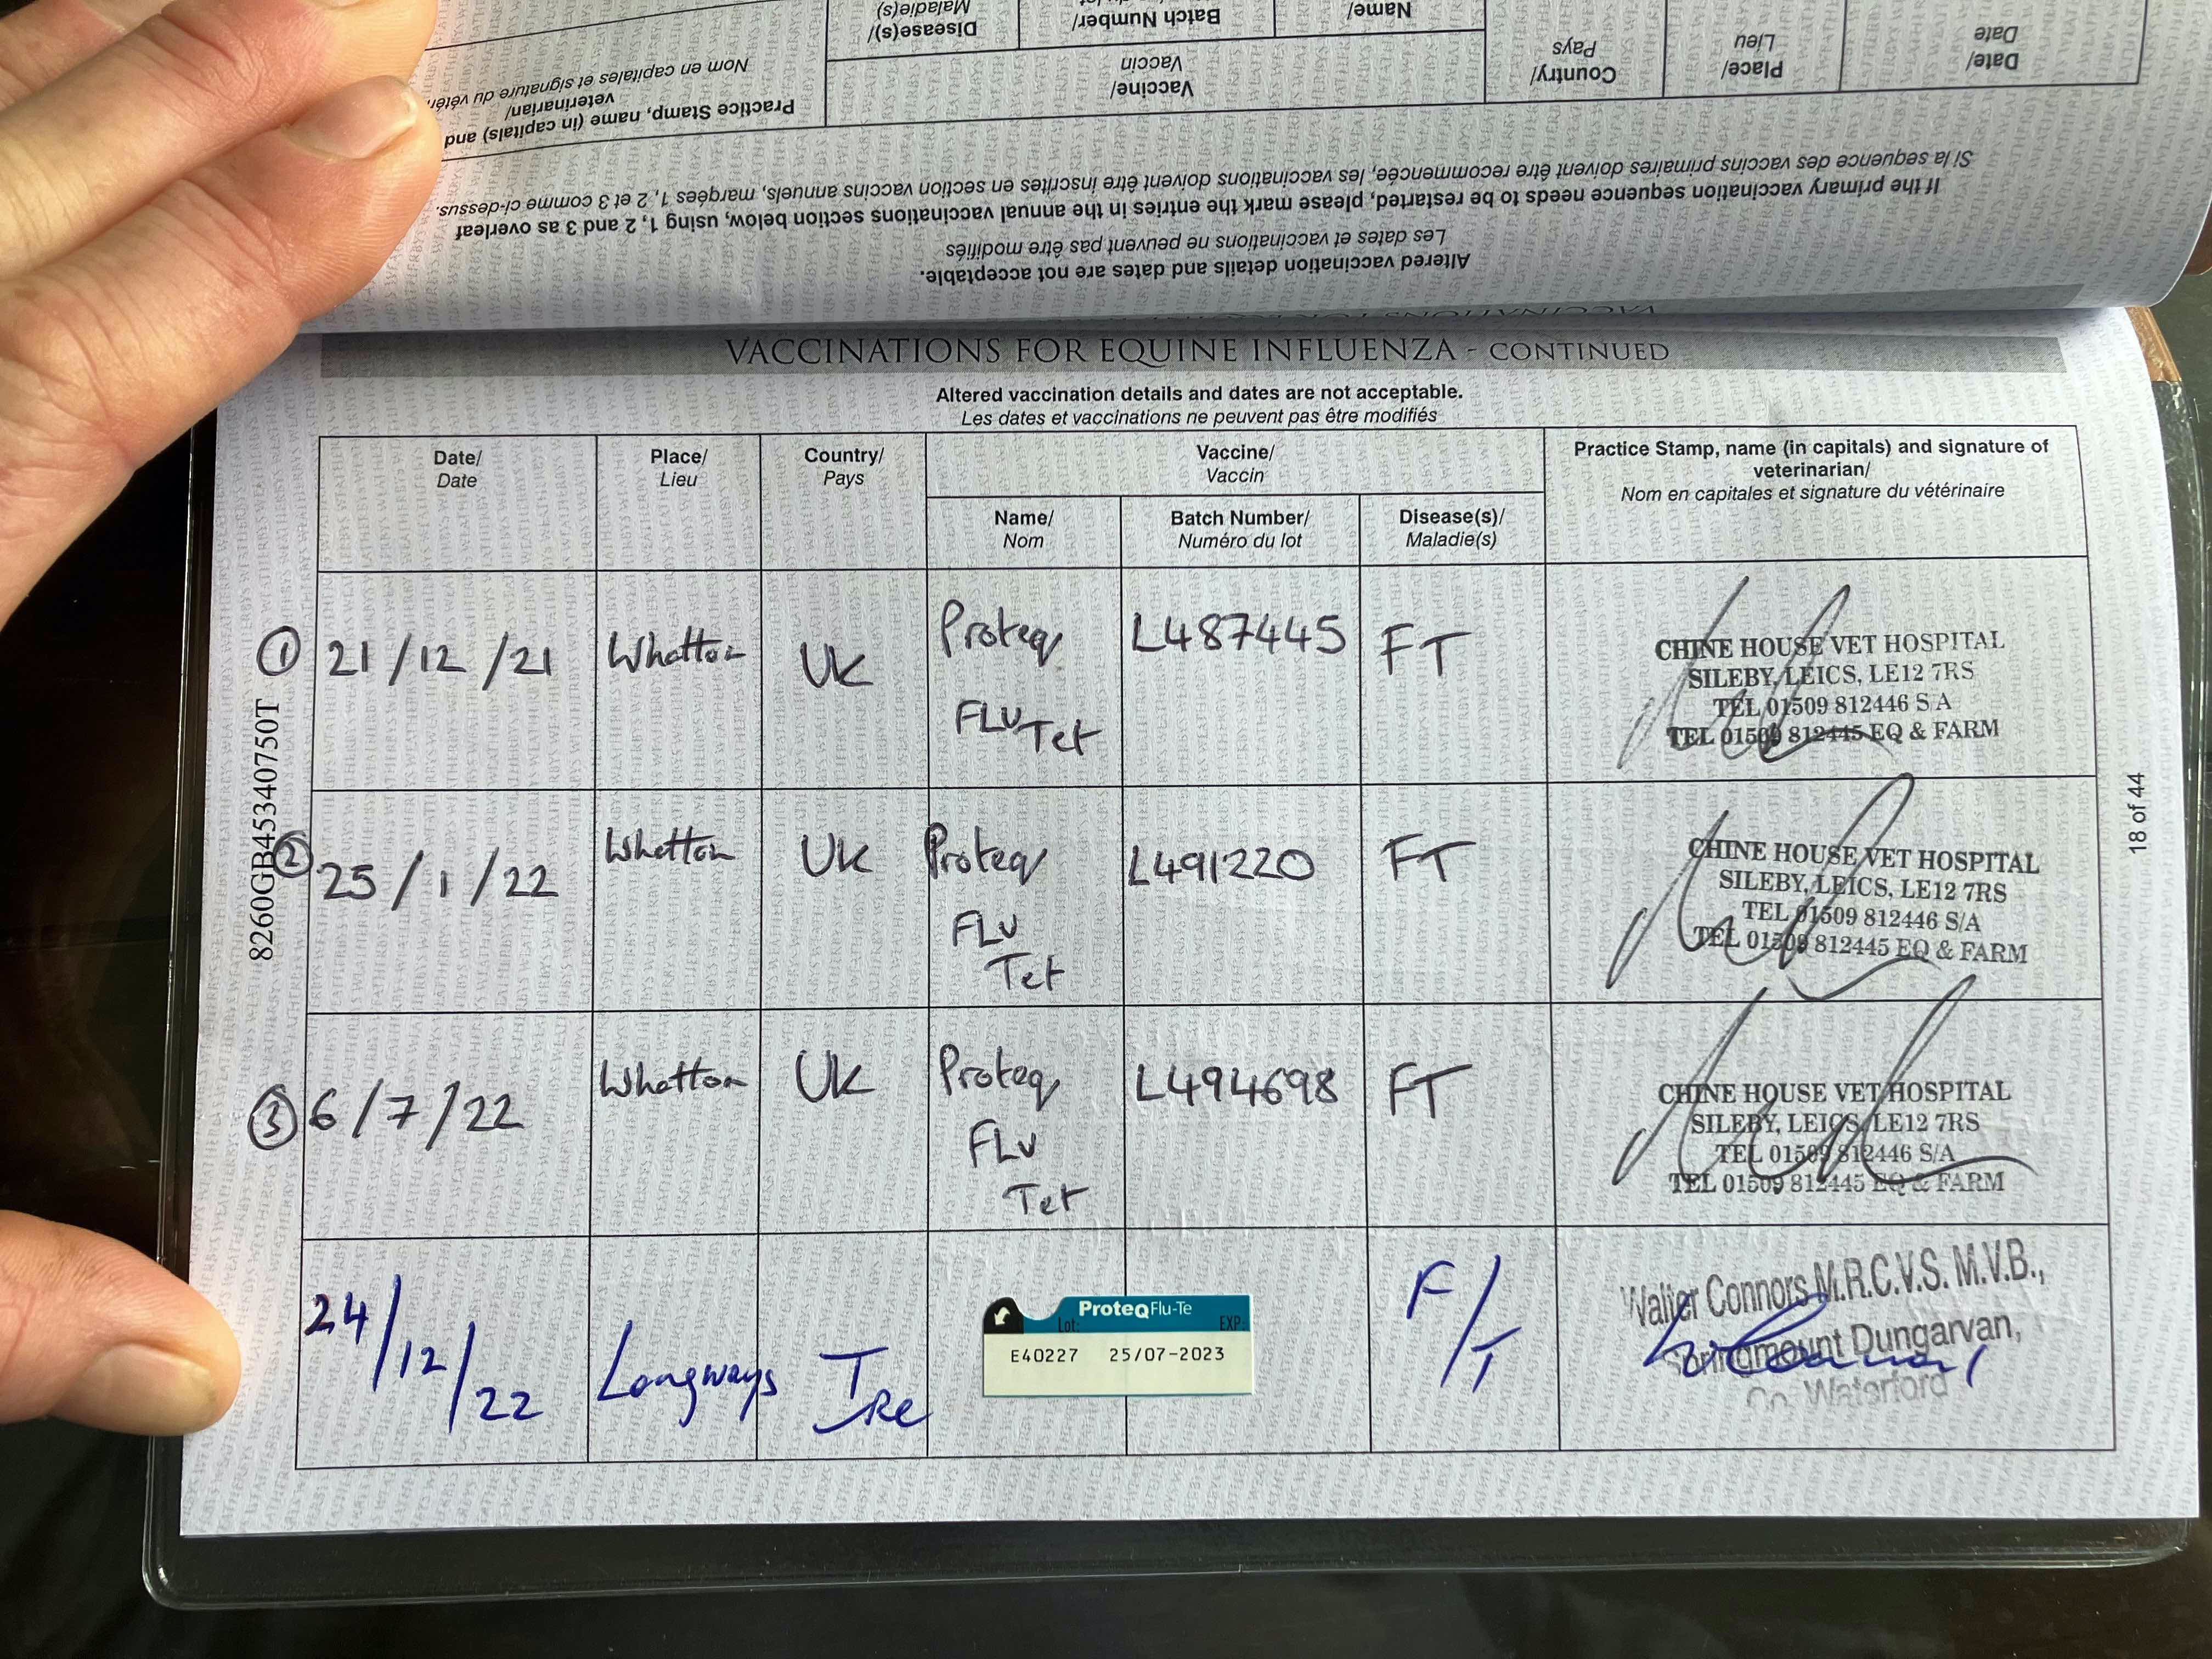 Date/
Date
Place/
Lieu
Country/
Pays
Vaccine/
Vaccin
Name/
Batch Number/
Disease(s)/
Maladie(s)
Practice Stamp, name (in capitals) and
veterinarian/
Nom en capitales et signature du vétér
If the primary vaccination sequence needs to be restarted, please mark the entries in the annual vaccinations section below, using 1, 2 and 3 as overleaf
Si la sequence des vaccins primaires doivent être recommencée, les vaccinations doivent être inscrites en section vaccins annuels, marqées 1, 2 et 3 comme ci-dessus.
Altered vaccination details and dates are not acceptable.
Les dates et vaccinations ne peuvent pas être modifiés
VACCINATIONS FOR EQUINE INFLUENZA - CONTINUED
Altered vaccination details and dates are not acceptable.
Les dates et vaccinations ne peuvent pas être modifiés
Date/
Date
Place/
Lieu
Country/
Pays
Vaccine/
Vaccin
Practice Stamp, name (in capitals) and signature of
veterinarian/
Nom en capitales et signature du vétérinaire
Name/
Nom
Batch Number/
Numéro du lot
Disease(s)/
Maladie(s)
① 21/12/21 Whatton UK Proteq L487445 FT
FLU Tet
CHINE HOUSE VET HOSPITAL
SILEBY, LEICS, LE12 7RS
TEL 01509 812446 S/A
TEL 01509 812445 EQ & FARM
② 25/1/22 Whatton UK Proteq L491220 FT
FLU
Tet
CHINE HOUSE VET HOSPITAL
SILEBY, LEICS, LE12 7RS
TEL 01509 812446 S/A
TEL 01509 812445 EQ & FARM
③ 6/7/22 Whatton UK Proteq L494698 FT
FLU
Tet
CHINE HOUSE VET HOSPITAL
SILEBY, LEICS, LE12 7RS
TEL 01509 812446 S/A
TEL 01509 812445 EQ & FARM
24/12/22 Longways IRe
ProteqFlu-Te
Lot: EXP:
E40227 25/07-2023
F/T
Walter Connors M.R.C.V.S. M.V.B.,
Springmount Dungarvan,
Co. Waterford
8260GB45340750T
18 of 44